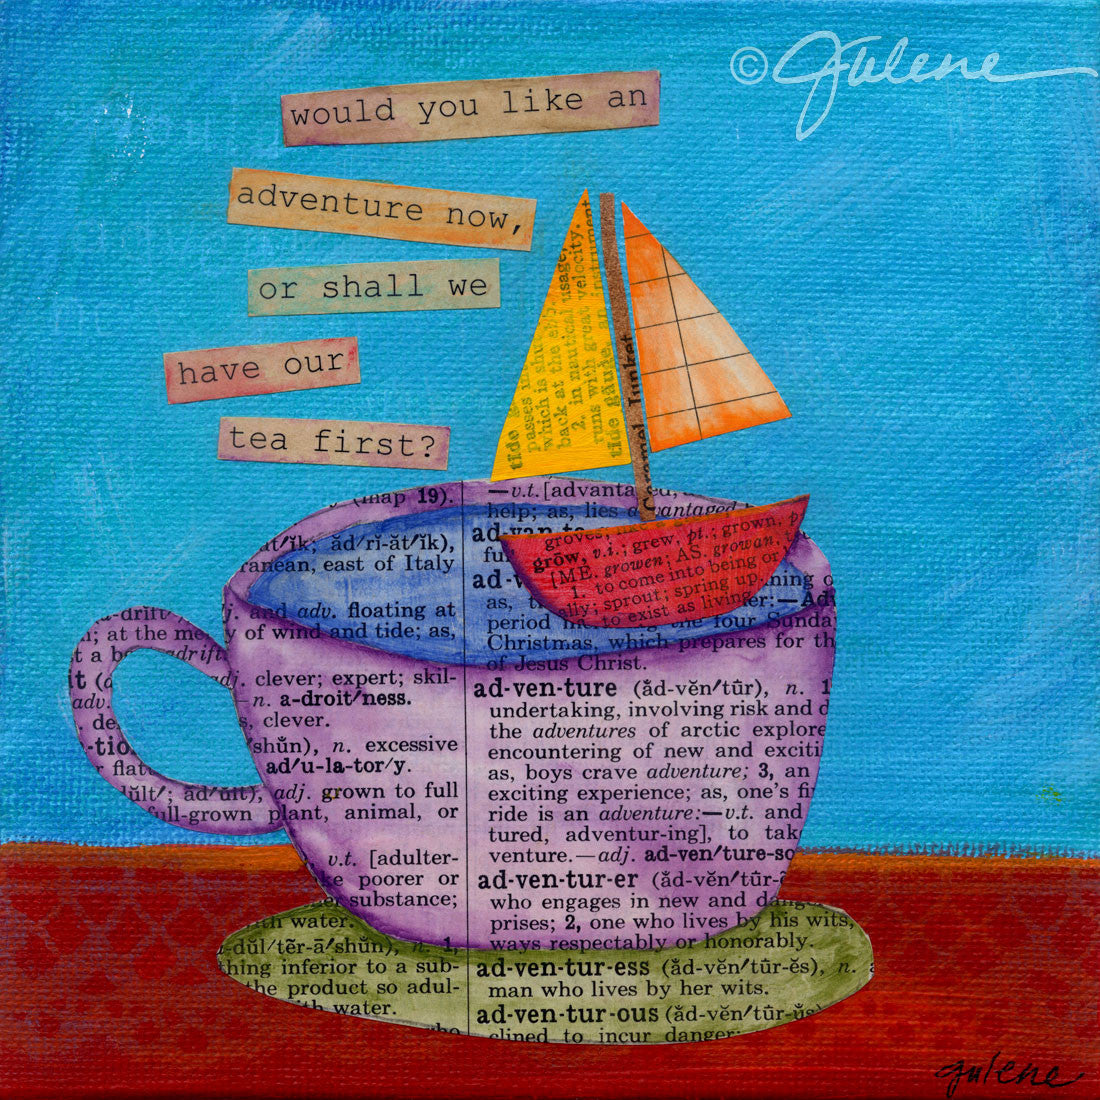 © Julene
would you like an
adventure now,
or shall we
have our
tea first?
tide
passes in
which is sh
back at the ebb
2. in nautical usage,
runs with great velocity.
tide gauge, an instrument
Caramel Junket
(map 19).
at′ĭk; ăd′rĭ-ăt′ĭk),
ranean, east of Italy
adrift
j. and adv. floating at
; at the me y of wind and tide; as,
adrift
dj. clever; expert; skil-
adv.
n. a-droit′ness.
s, clever.
-tio
′shŭn), n. excessive
flat
ad′u-la-to-ry.
dŭlt′; ăd′ŭlt), adj. grown to full
full-grown plant, animal, or
v.t. [adulter-
ke poorer or
substance;
th water.
-dŭl′tẽr-ā′shŭn), n. 1,
thing inferior to a sub-
the product so adul-
th water.
who
—v.t. [advanta ed,
help; as, lies advantaged
ad-van-ta
fu
ad-v
as, t
period
the four Sunda
Christmas, which prepares for th
of Jesus Christ.
groves,
grōw, v.i.; grew, pt.; grown, p
[ME. growen; AS. growan,
1. to come into being or
ally; sprout; spring up
to exist as living
ad-ven-ture (ăd-vĕn′tūr), n. 1
undertaking, involving risk and d
the adventures of arctic explore
encountering of new and exciti
as, boys crave adventure; 3, an
exciting experience; as, one's fi
ride is an adventure:—v.t. and
tured, adventur-ing], to tak
venture.—adj. ad-ven′ture-so
ad-ven-tur-er (ăd-vĕn′tūr-
who engages in new and dang
prises; 2, one who lives by his wits,
ways respectably or honorably.
ad-ven-tur-ess (ăd-vĕn′tūr-ĕs), n. a
man who lives by her wits.
ad-ven-tur-ous (ăd-vĕn′tūr-ŭs
clined to incur danger;
Julene